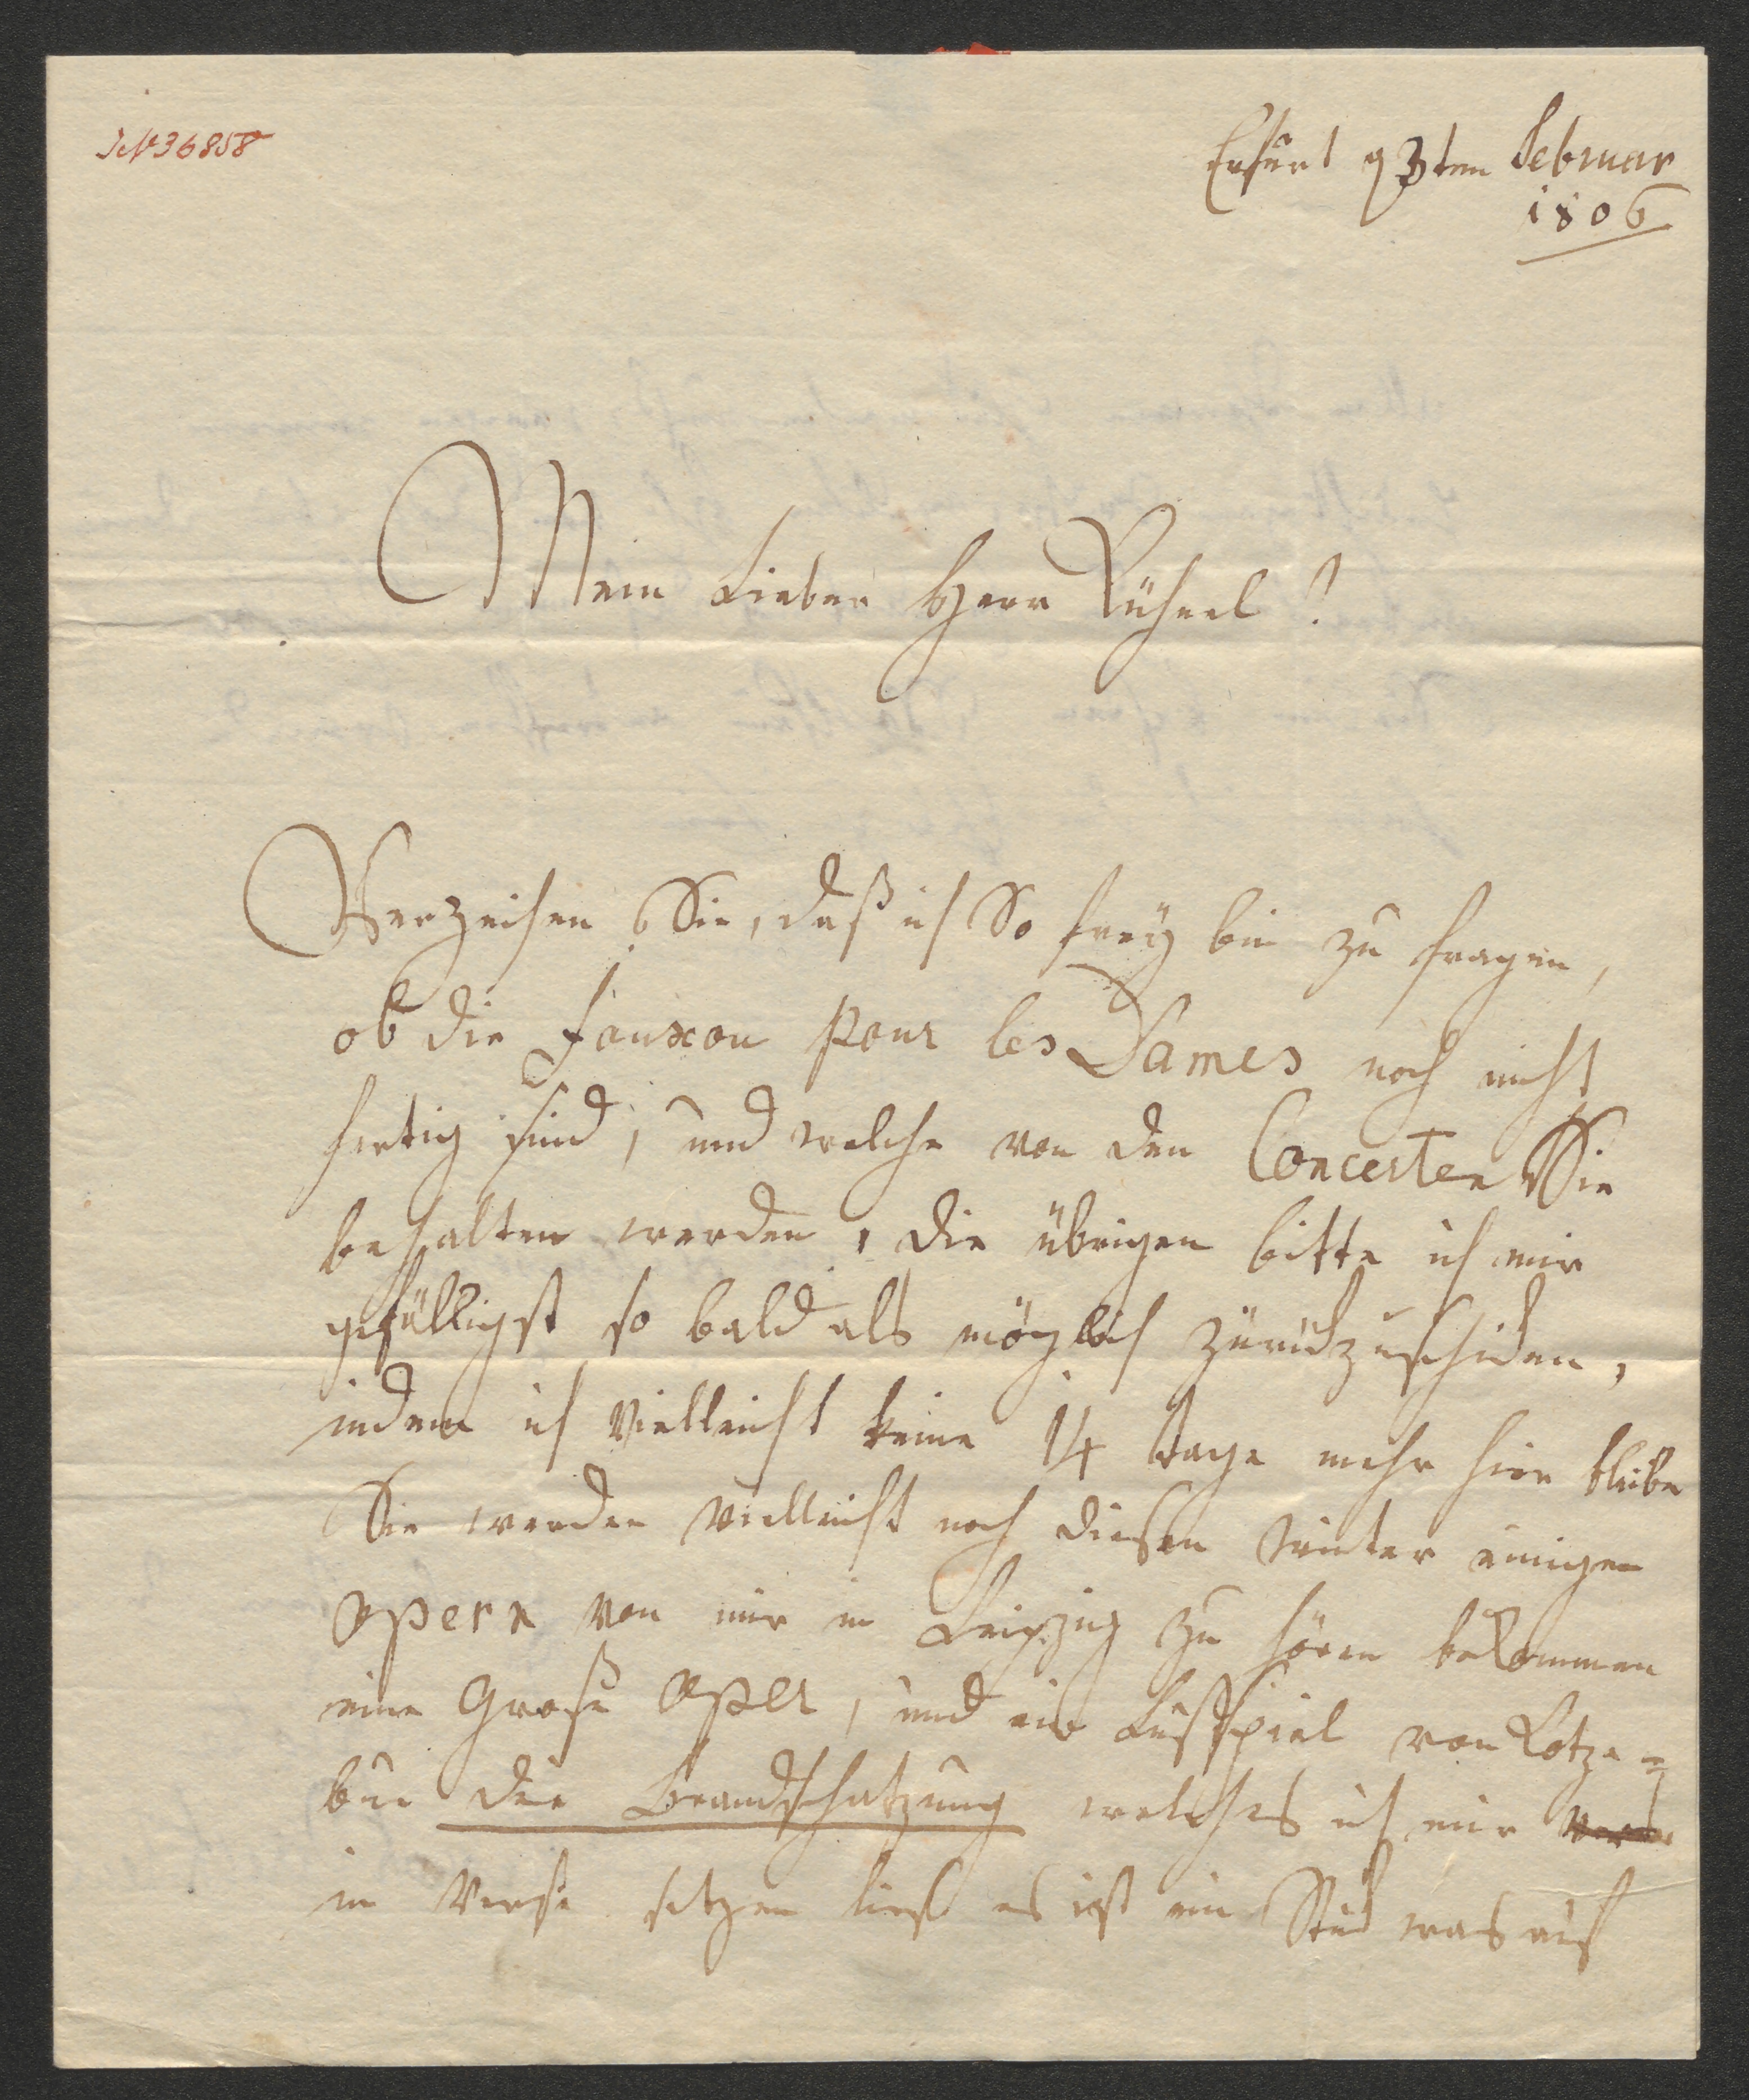 No 36858
Erfurt d 3ten Februar
1806
Mein Lieber Herr Kühnel!
Verzeihen Sie, daß ich So freÿ bin zu fragen,
ob die pour les Dames noch nicht
fertig sind, und welche von den Concerten Sie
behalten werden, die übrigen bitte ich mir
gefälligst so bald als möglich zurückzuschicken,
indem ich Vielleicht keine 14 tage mehr hier bleibe
Sie werden vielleicht noch diesen winter einigen
opern von mir in Leipzig zu hören bekommen
eine Große oper, und ein Lustspiel von Kotze=
bue die Brandschatzung welches ich mir
in Verse setzen ließ es ist ein Stück was auf